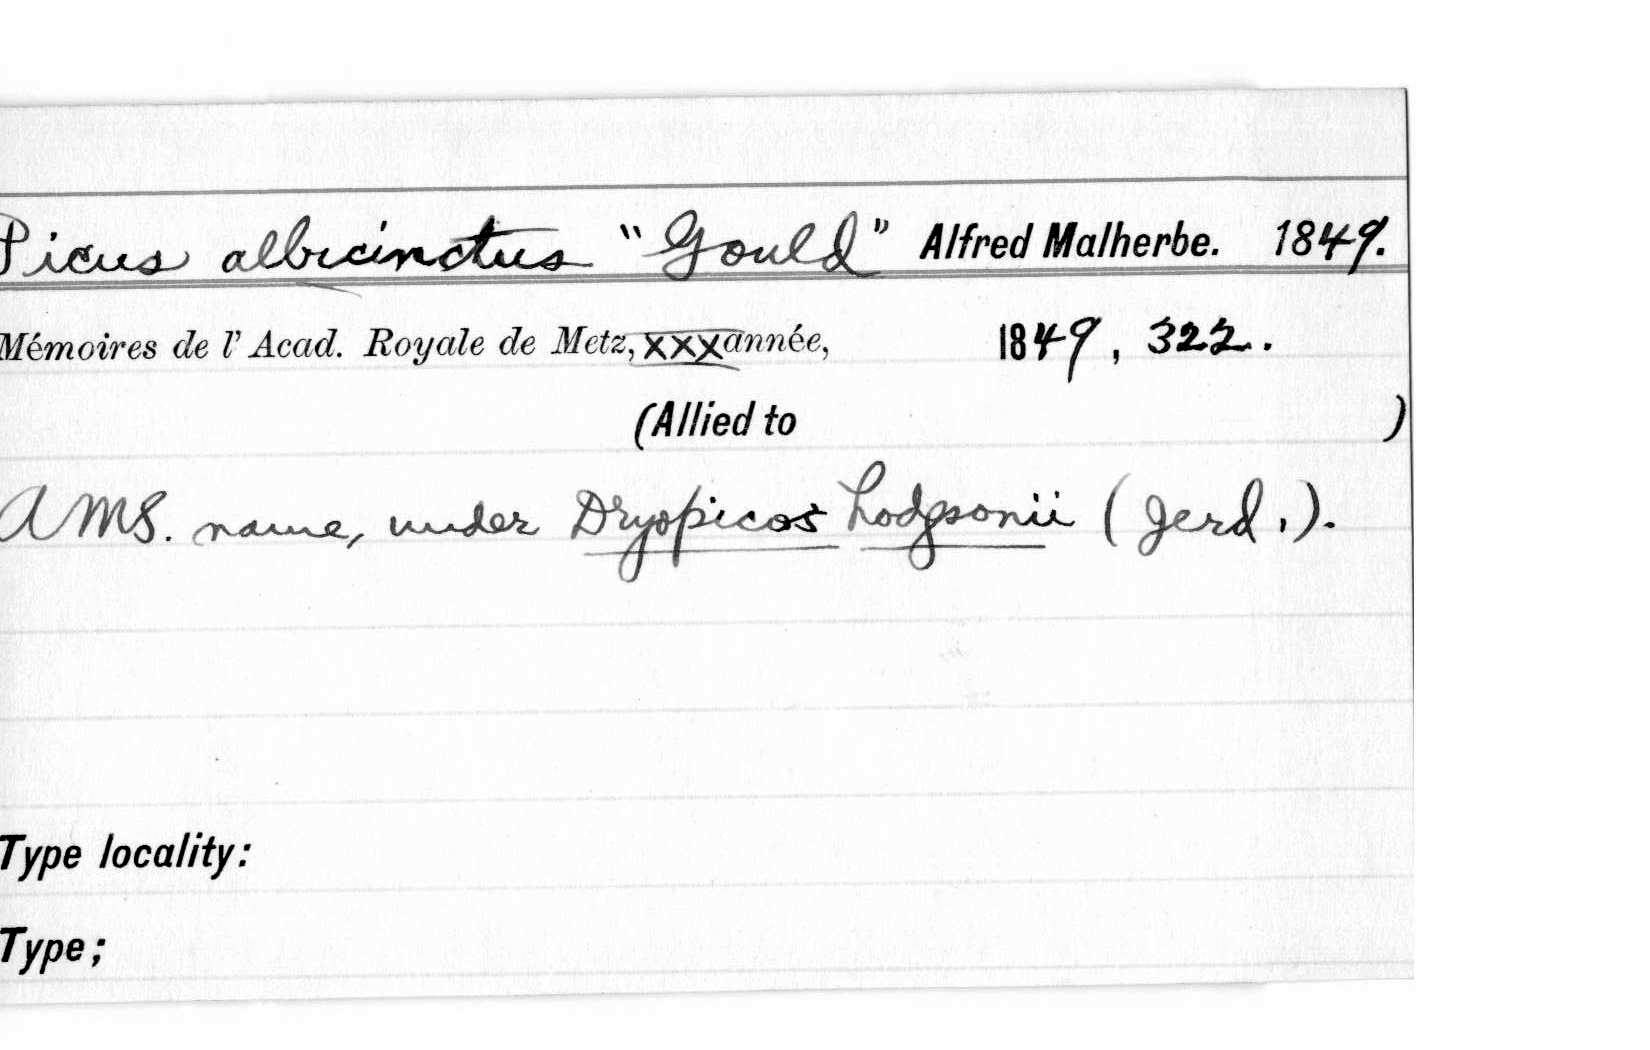 Picus albicinctus "Gould" Alfred Malherbe. 1849.
Mémoires de l' Acad. Royale de Metz, XXX année, 1849, 322.
(Allied to )
A MS. name, under Dryopicos hodgsonii (Jerd.).
Type locality:
Type;